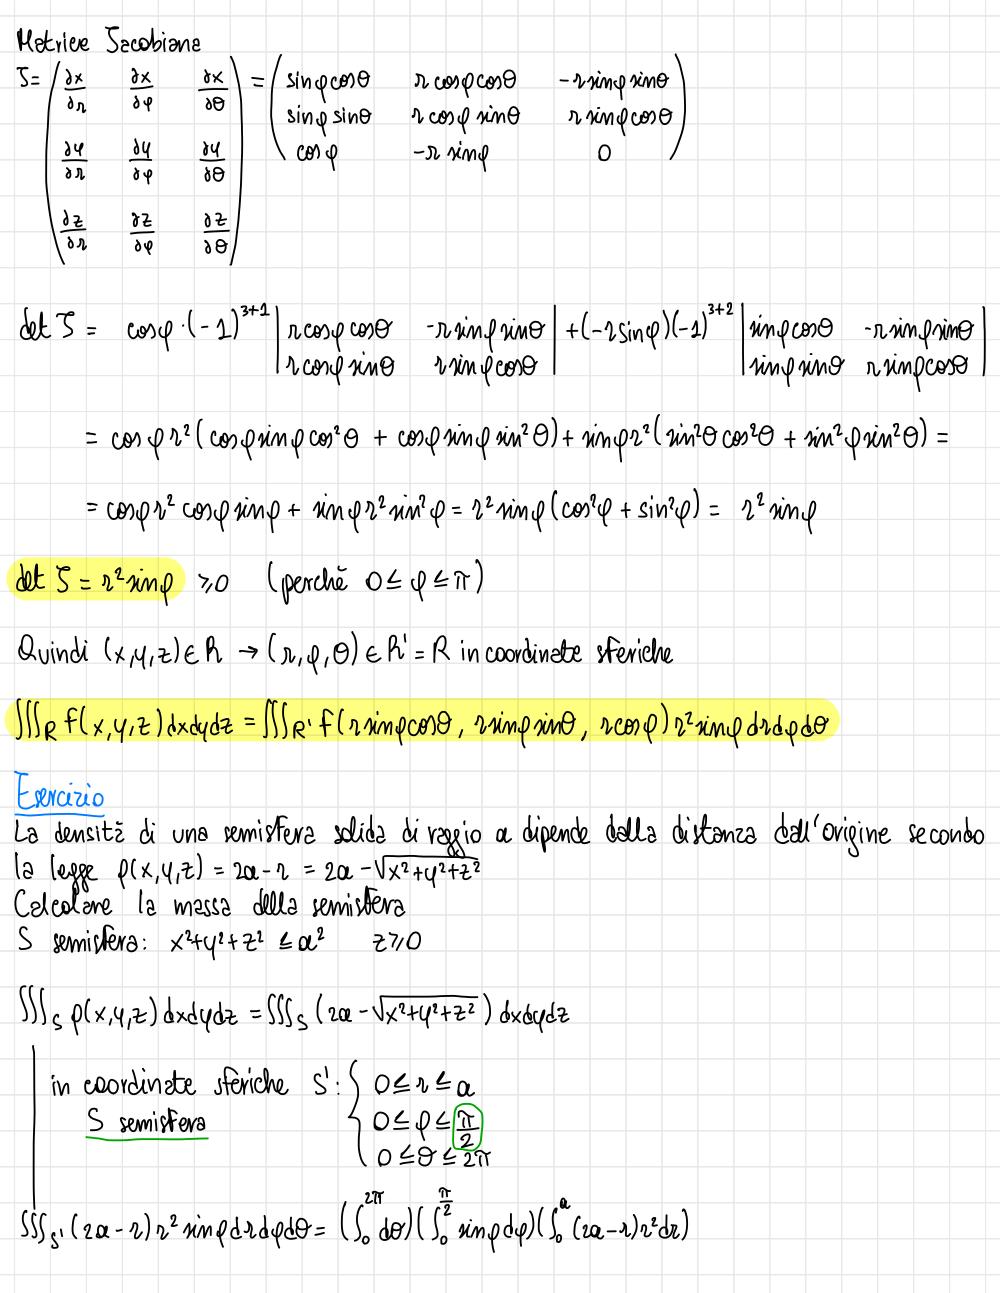 Matrice Jacobiana
J = (∂x/∂r ∂x/∂φ ∂x/∂θ) = (sinφcosθ r cosφcosθ -r sinφ sinθ)
(∂y/∂r ∂y/∂φ ∂y/∂θ) (sinφ sinθ r cosφ sinθ r sinφcosθ)
(∂z/∂r ∂z/∂φ ∂z/∂θ) (cosφ -r sinφ 0)
det J = cosφ·(-1)^{3+1} |rcosφcosθ -r sinφ sinθ| +(-r sinφ)(-1)^{3+2} |sinφcosθ -r sinφ sinθ|
|rcosφ sinθ r sinφcosθ| |sinφ sinθ r sinφcosθ|
= cosφ r²(cosφ sinφ cos²θ + cosφ sinφ sin²θ) + sinφ r²(sin²θ cos²θ + sin²φ sin²θ) =
= cosφ r² cosφ sinφ + sinφ r² sin²φ = r² sinφ (cos²φ + sin²φ) = r² sinφ
det J = r² sinφ ≥0 (perchè 0 ≤ φ ≤ π)
Quindi (x,y,z) ∈ R → (r,φ,θ) ∈ R' = R in coordinate sferiche
∭_R f(x,y,z) dxdydz = ∭_R' f(r sinφcosθ, r sinφ sinθ, rcosφ) r² sinφ drdφdθ
Esercizio
La densità di una semisfera solida di raggio a dipende dalla distanza dall'origine secondo
la legge ρ(x,y,z) = 2a - r = 2a - √(x²+y²+z²)
Calcolare la massa della semisfera
S semisfera: x²+y²+z² ≤ a² z ≥ 0
∭_S ρ(x,y,z) dxdydz = ∭_S (2a - √(x²+y²+z²)) dxdydz
in coordinate sferiche S': { 0 ≤ r ≤ a
S semisfera 0 ≤ φ ≤ π/2
0 ≤ θ ≤ 2π
∭_S' (2a - r) r² sinφ drdφdθ = (∫₀^{2π} dθ)(∫₀^{π/2} sinφ dφ)(∫₀^a (2a - r) r² dr)